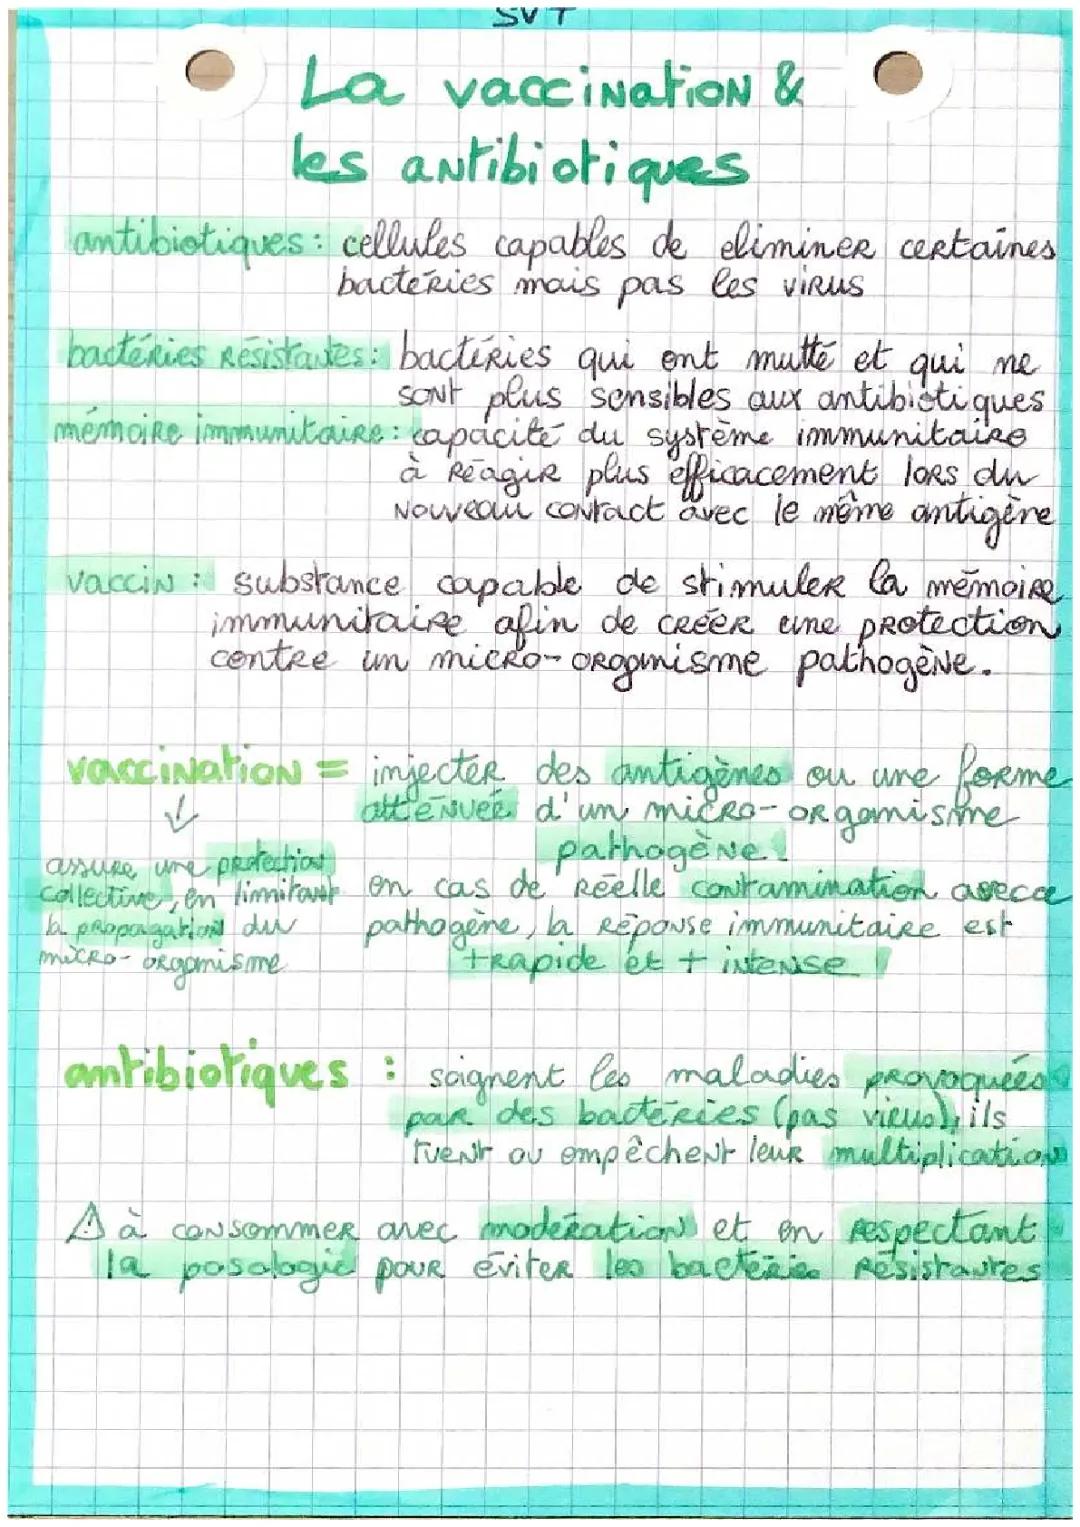 SVT
La vaccination &
les antibiotiques
antibiotiques : cellules capables de eliminer certaines
bactéries mais pas les virus
bactéries résistantes : bactéries qui ont mutté et qui ne
sont plus sensibles aux antibiotiques
mémoire immunitaire : capacité du système immunitaire
à réagir plus efficacement lors du
nouveau contact avec le même antigène
vaccin : substance capable de stimuler la mémoire
immunitaire afin de créer une protection
contre un micro-organisme pathogène.
vaccination = injecter des antigènes ou une forme
atténuée d'un micro-organisme
pathogène.
↓
assure une protection
collective, en limmitant
la propagation du
micro-organisme
en cas de réelle contamination avec ce
pathogène, la réponse immunitaire est
+ rapide et + intense !
antibiotiques : soignent les maladies provoquées
par des bactéries (pas virus), ils
tuent ou empêchent leur multiplication
⚠ à consommer avec modération et en respectant
la posologie pour éviter les bactéries résistantes